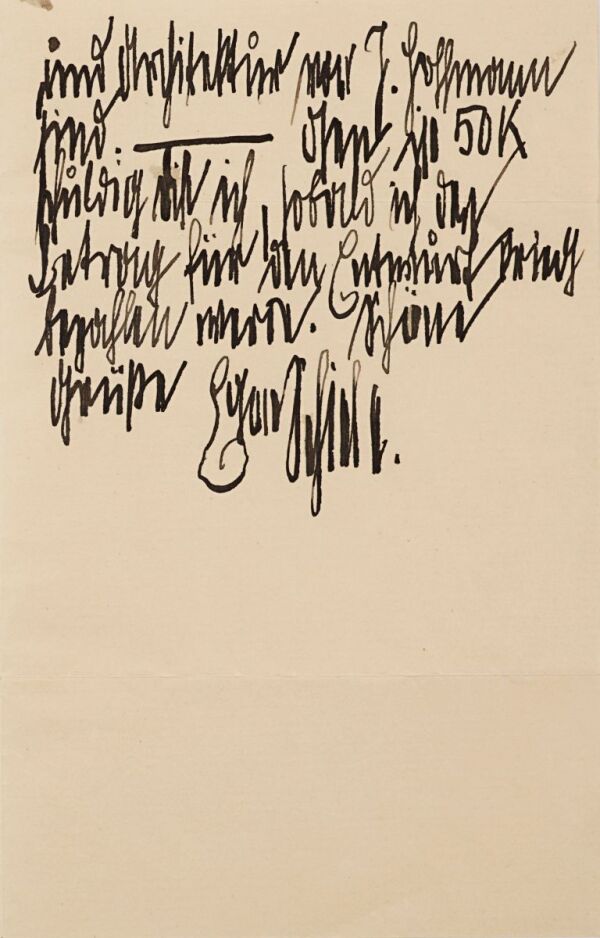 und Architektur von J. Hoffmann
sind. 50K
schuldig die ich, sobald ich den
Betrag für den Entwurf krieg
bezahlen werde. Schöne
Grüße Egon Schiele.